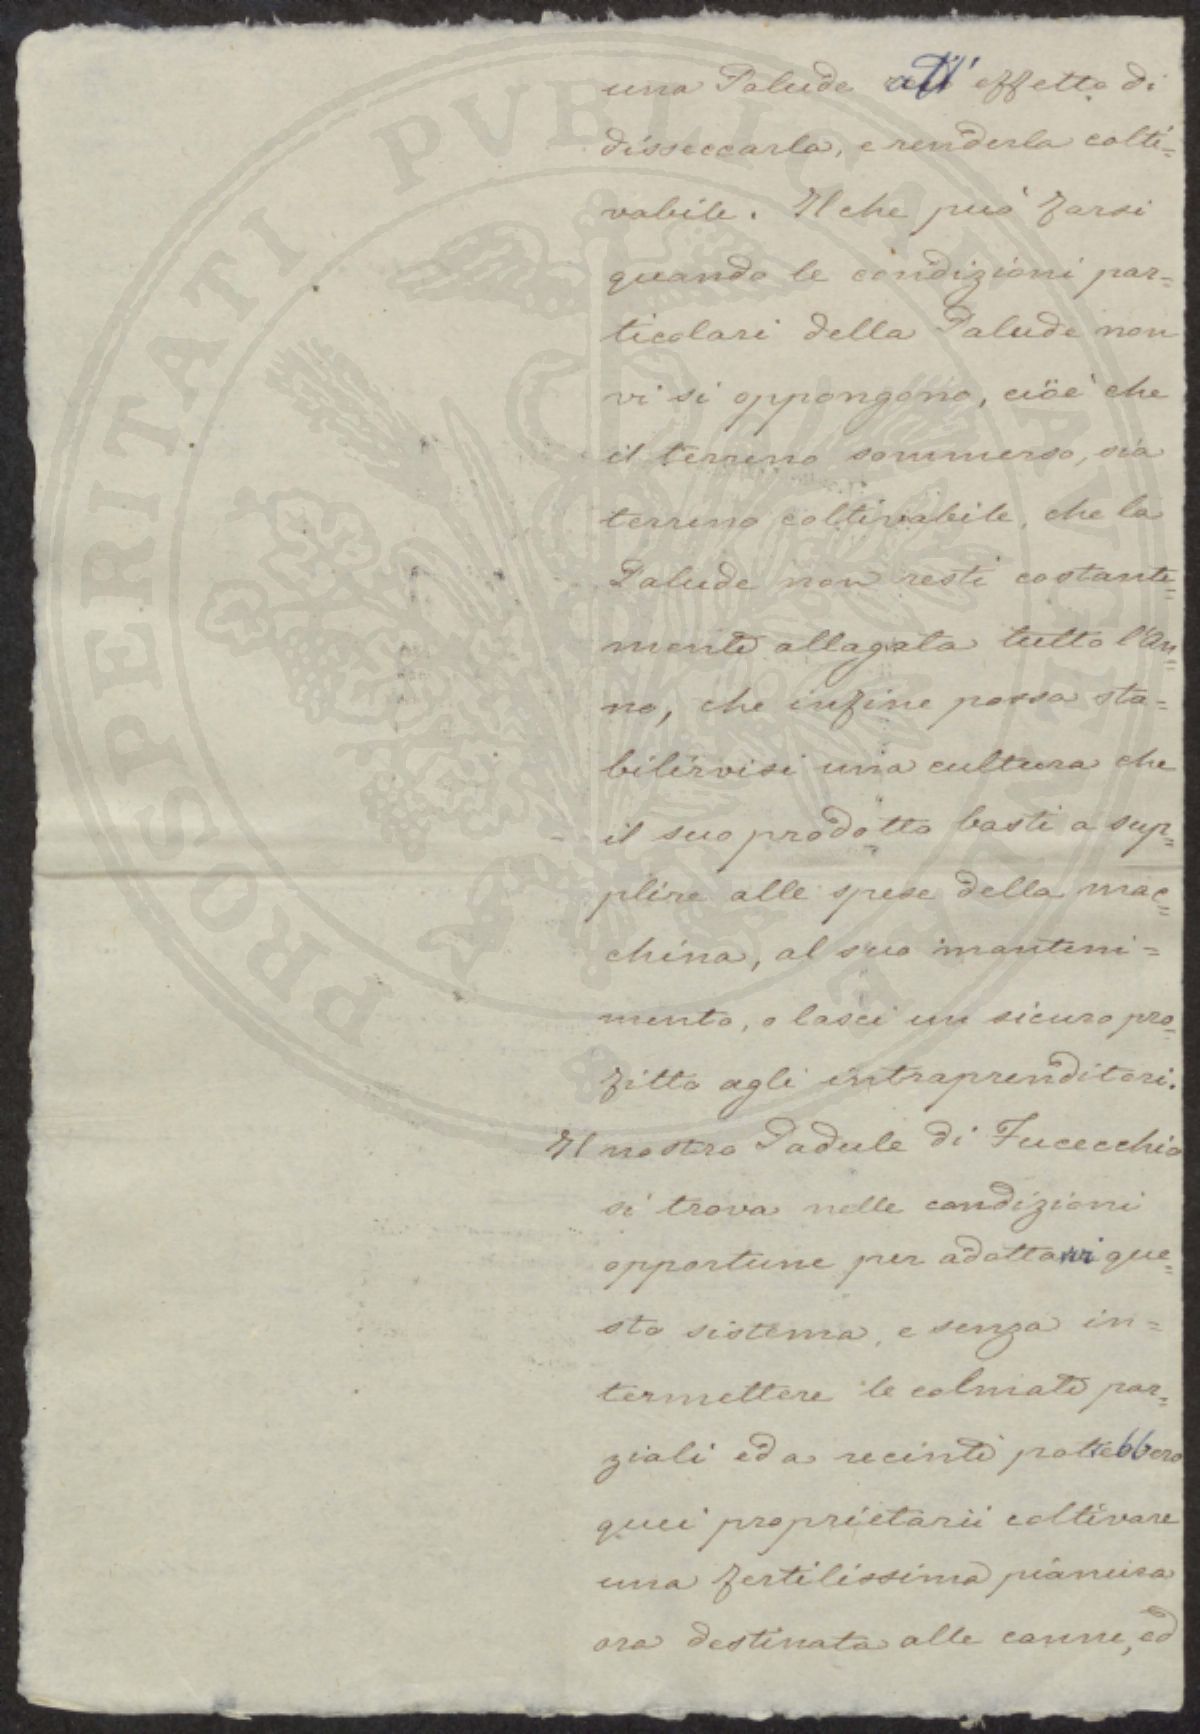 una Palude all' effetto di
disseccarla, e renderla colti=
vabile. Il che può farsi
quando le condizioni par=
ticolari della Palude non
vi si oppongono, cioè che
il terreno sommerso, sia
terreno coltivabile, che la
Palude non resti costante=
mente allagata tutto l'An=
no, che infine possa sta=
bilirvisi una cultura che
il suo prodotto basti a sup=
plire alle spese della mac=
china, al suo manteni=
mento, o lasci un sicuro pro=
fitto agli intraprenditori.
Il nostro Padule di Fucecchio
si trova nelle condizioni
opportune per adottarvi que=
sto sistema, e senza in=
termettere le colmate par=
ziali ed a recinti potrebbero
quei proprietarii coltivare
una fertilissima pianura
ora destinata alle canne, ed
PROSPERITATI PVBLICAE AVGENDAE